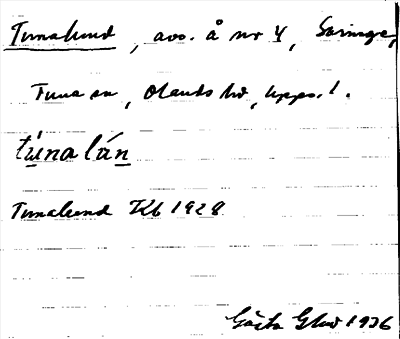 Tunalund, avs. å nr 4, Søringe,
Tuna sn, Olands hd, Upps. l.
tùna lán
Tunalund Kb 1928
Gösta 1936